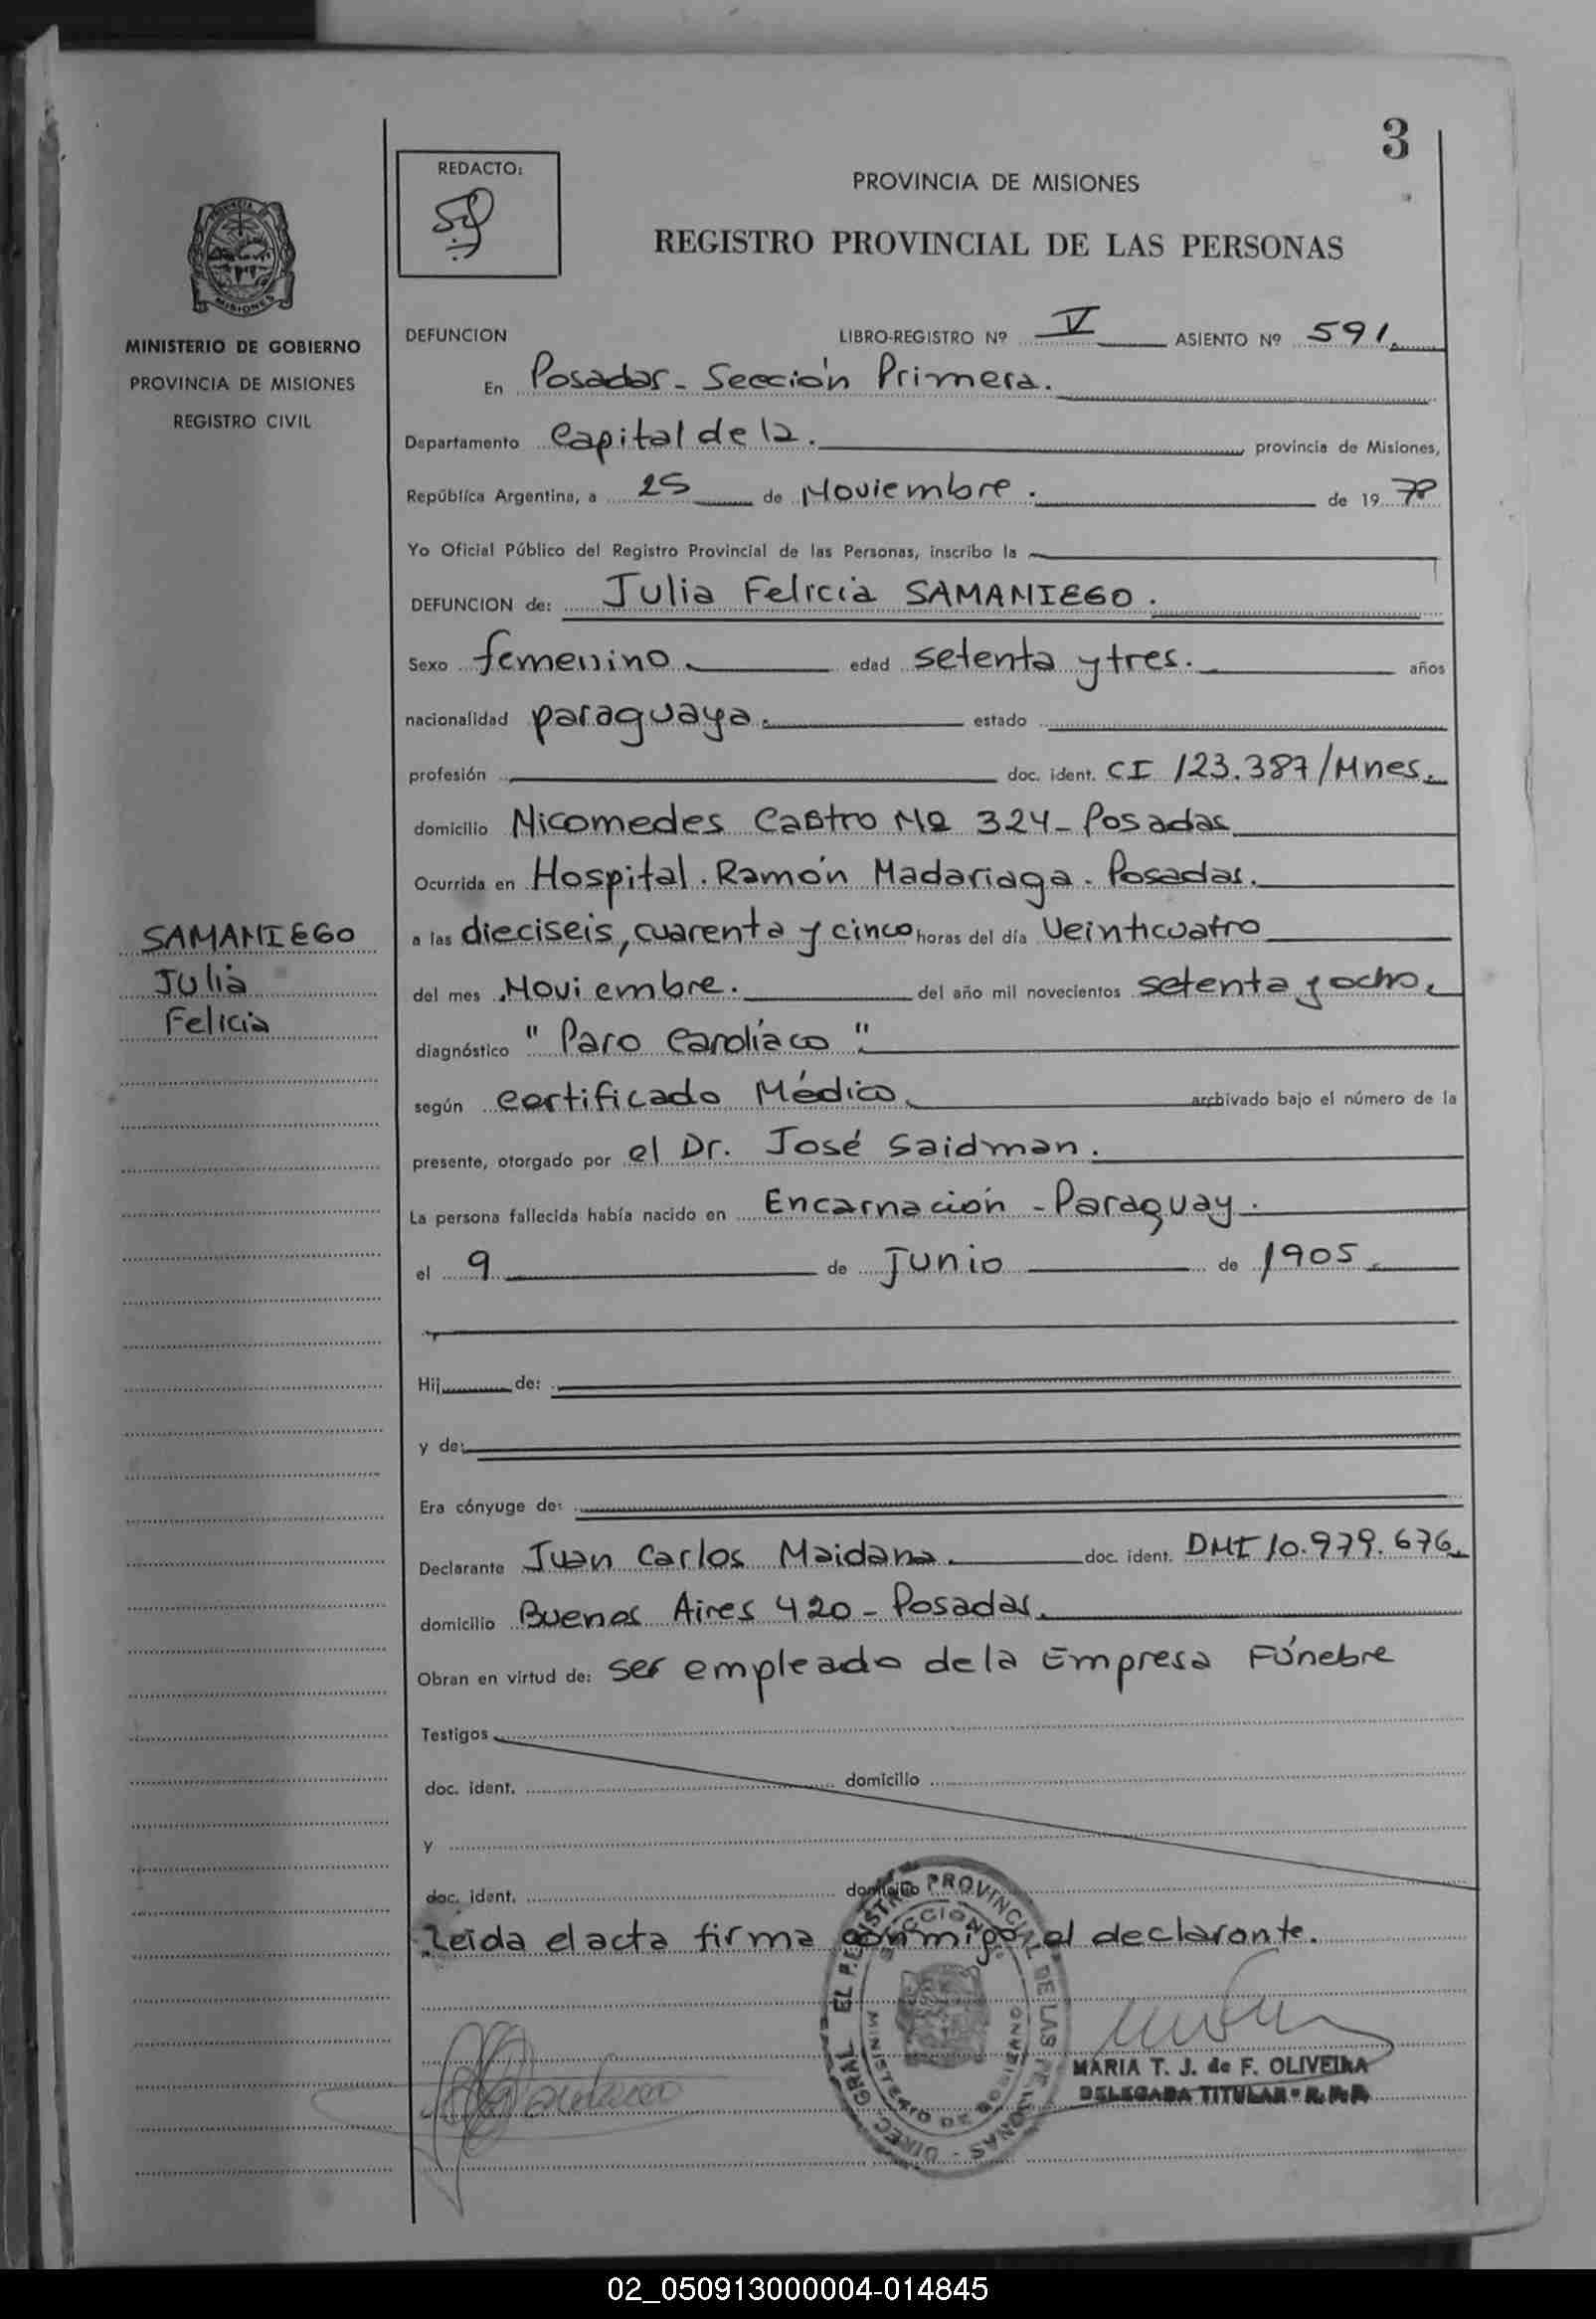 3
REDACTO:
PROVINCIA DE MISIONES
REGISTRO PROVINCIAL DE LAS PERSONAS
MISIONES
MINISTERIO DE GOBIERNO
PROVINCIA DE MISIONES
REGISTRO CIVIL
DEFUNCION LIBRO-REGISTRO Nº V ASIENTO Nº 591.
En Posadas - Sección Primera.
Departamento Capital de la. provincia de Misiones,
República Argentina, a 25 de Noviembre. de 1978
Yo Oficial Público del Registro Provincial de las Personas, inscribo la
DEFUNCION de: Julia Felicia SAMANIEGO.
Sexo femenino. edad setenta y tres. años
nacionalidad paraguaya. estado
profesión doc. ident. CI 123.387/Mnes.
domicilio Nicomedes Castro Nº 324 - Posadas
Ocurrida en Hospital. Ramón Madariaga. Posadas.
a las dieciseis, cuarenta y cinco horas del día veinticuatro
del mes Noviembre. del año mil novecientos setenta y ocho.
diagnóstico "Paro Cardíaco".
según certificado Médico. archivado bajo el número de la
presente, otorgado por el Dr. José Saidman.
La persona fallecida había nacido en Encarnación - Paraguay.
el 9 de Junio de 1905.
Hij de:
y de:
Era cónyuge de:
Declarante Juan Carlos Maidana. doc. ident. DNI 10.979.676.
domicilio Buenos Aires 420 - Posadas.
Obran en virtud de: ser empleado de la Empresa Fúnebre
Testigos
doc. ident. domicilio
y
doc. ident. domicilio
Leida el acta firma conmigo, el declarante.
SAMANIEGO
Julia
Felicia
DIREC. GRAL. EL REGISTRO PROVINCIAL DE LAS PERSONAS
MINISTERIO DE GOBIERNO
MARIA T. J. de F. OLIVEIRA
DELEGADA TITULAR - R.P.P.
02_050913000004-014845